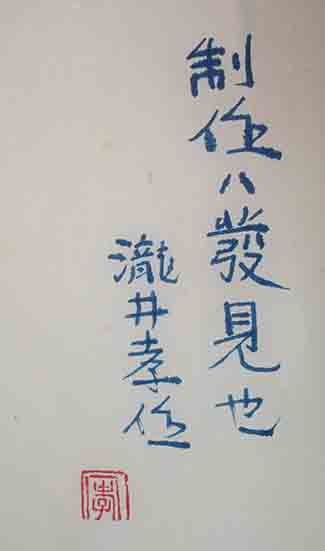 制作ハ發見也
瀧井孝作
孝